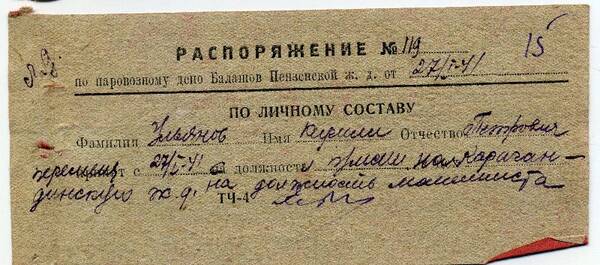 15
Л.Д.
РАСПОРЯЖЕНИЕ № 119
по паровозному депо Балашов Пензенской ж. д. от 27/V-41
ПО ЛИЧНОМУ СОСТАВУ
Фамилия Ульянов Имя Кирилл Отчество Петрович
с 27/V-41 должности на Караган-
динскую ж.д. на должность машиниста
ТЧ-4